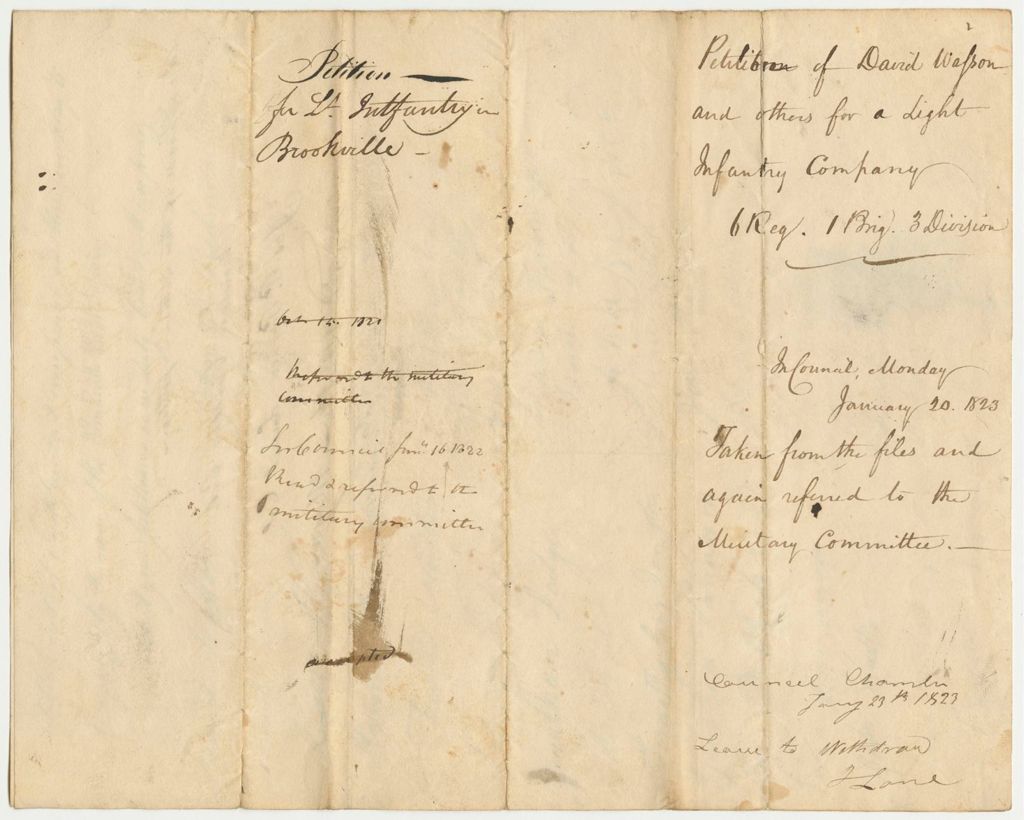 Petition —
for Lt. Intfantry in
Brookville —
Oct 14. 1821
Referred to the military
committee
In Council Jany. 16 1822
Read & referred to the
military committee
accepted
Petition of David Wasson
and others for a Light
Infantry Company
6 Reg. 1 Brig. 3 Division
In Council, Monday
January 20. 1823
Taken from the files and
again referred to the
Military Committee. —
Council Chamber
Jany 23th 1823
Leave to Withdraw
J Lane